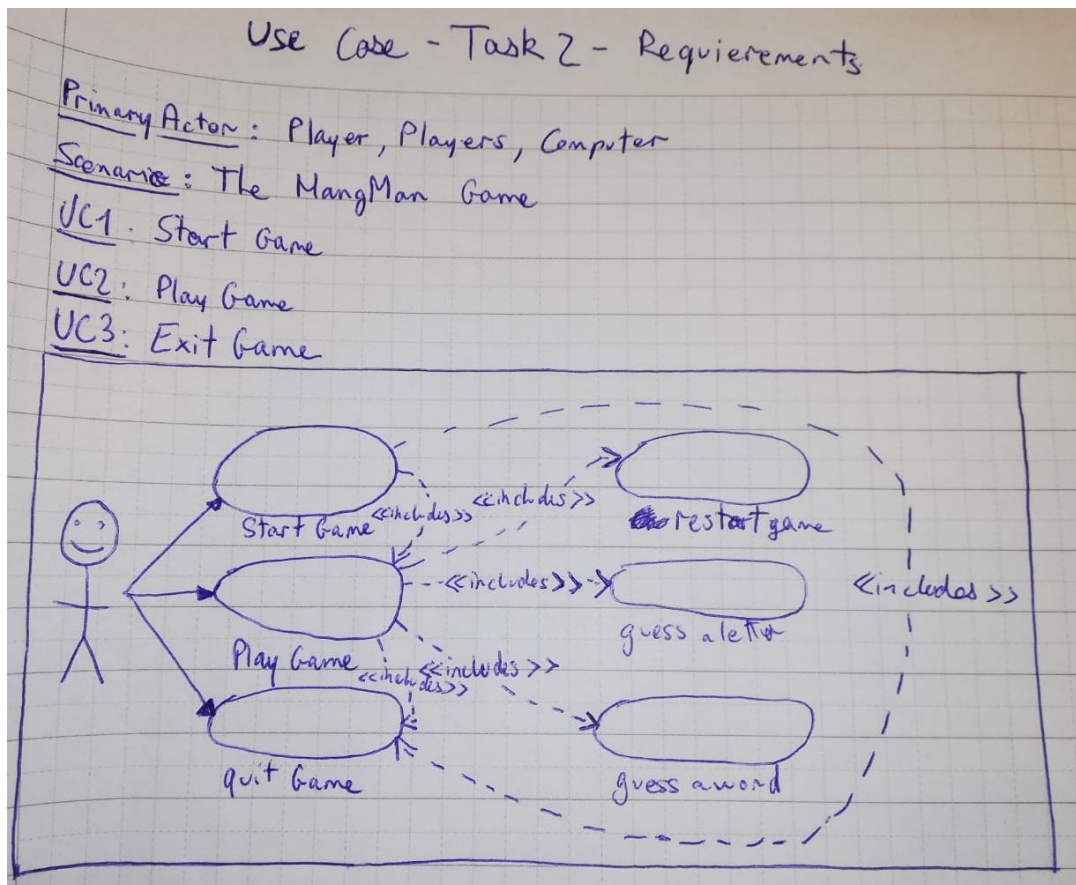 Use Case - Task 2 - Requierements
Primary Actor: Player, Players, Computer
Scenario: The HangMan Game
UC1: Start Game
UC2: Play Game
UC3: Exit Game
Start Game
<<includes>>
<<includes>>
restart game
Play Game
<<includes>>
guess a letter
<<includes>>
<<includes>>
<<includes>>
quit Game
guess a word